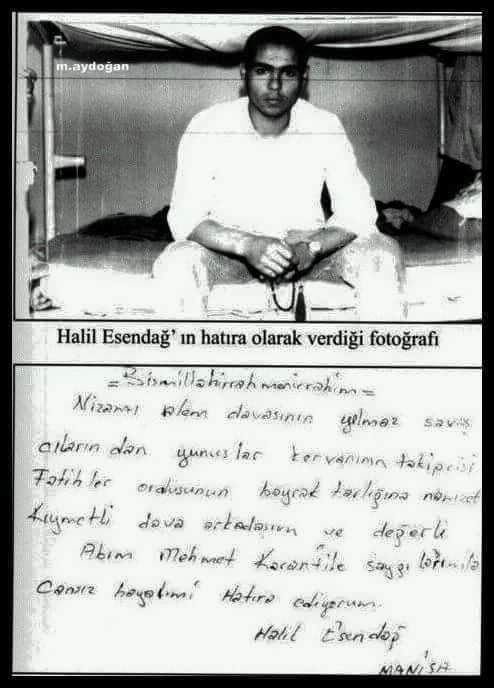 m.aydoğan
Halil Esendağ' ın hatıra olarak verdiği fotoğrafı
=Bismillahirrahmanirrahim=
Nizamı alem davasının yılmaz savaş
cıların dan yunuslar kervanının takipcisi
Fatihler ordusunun bayrak tarlığına namzet
Kıymetli dava arkadaşım ve değerli
Abim Mehmet Karanfile saygılarımla
Cansız hayalimi Hatıra ediyorum.
Halil Esendağ
MANİSA